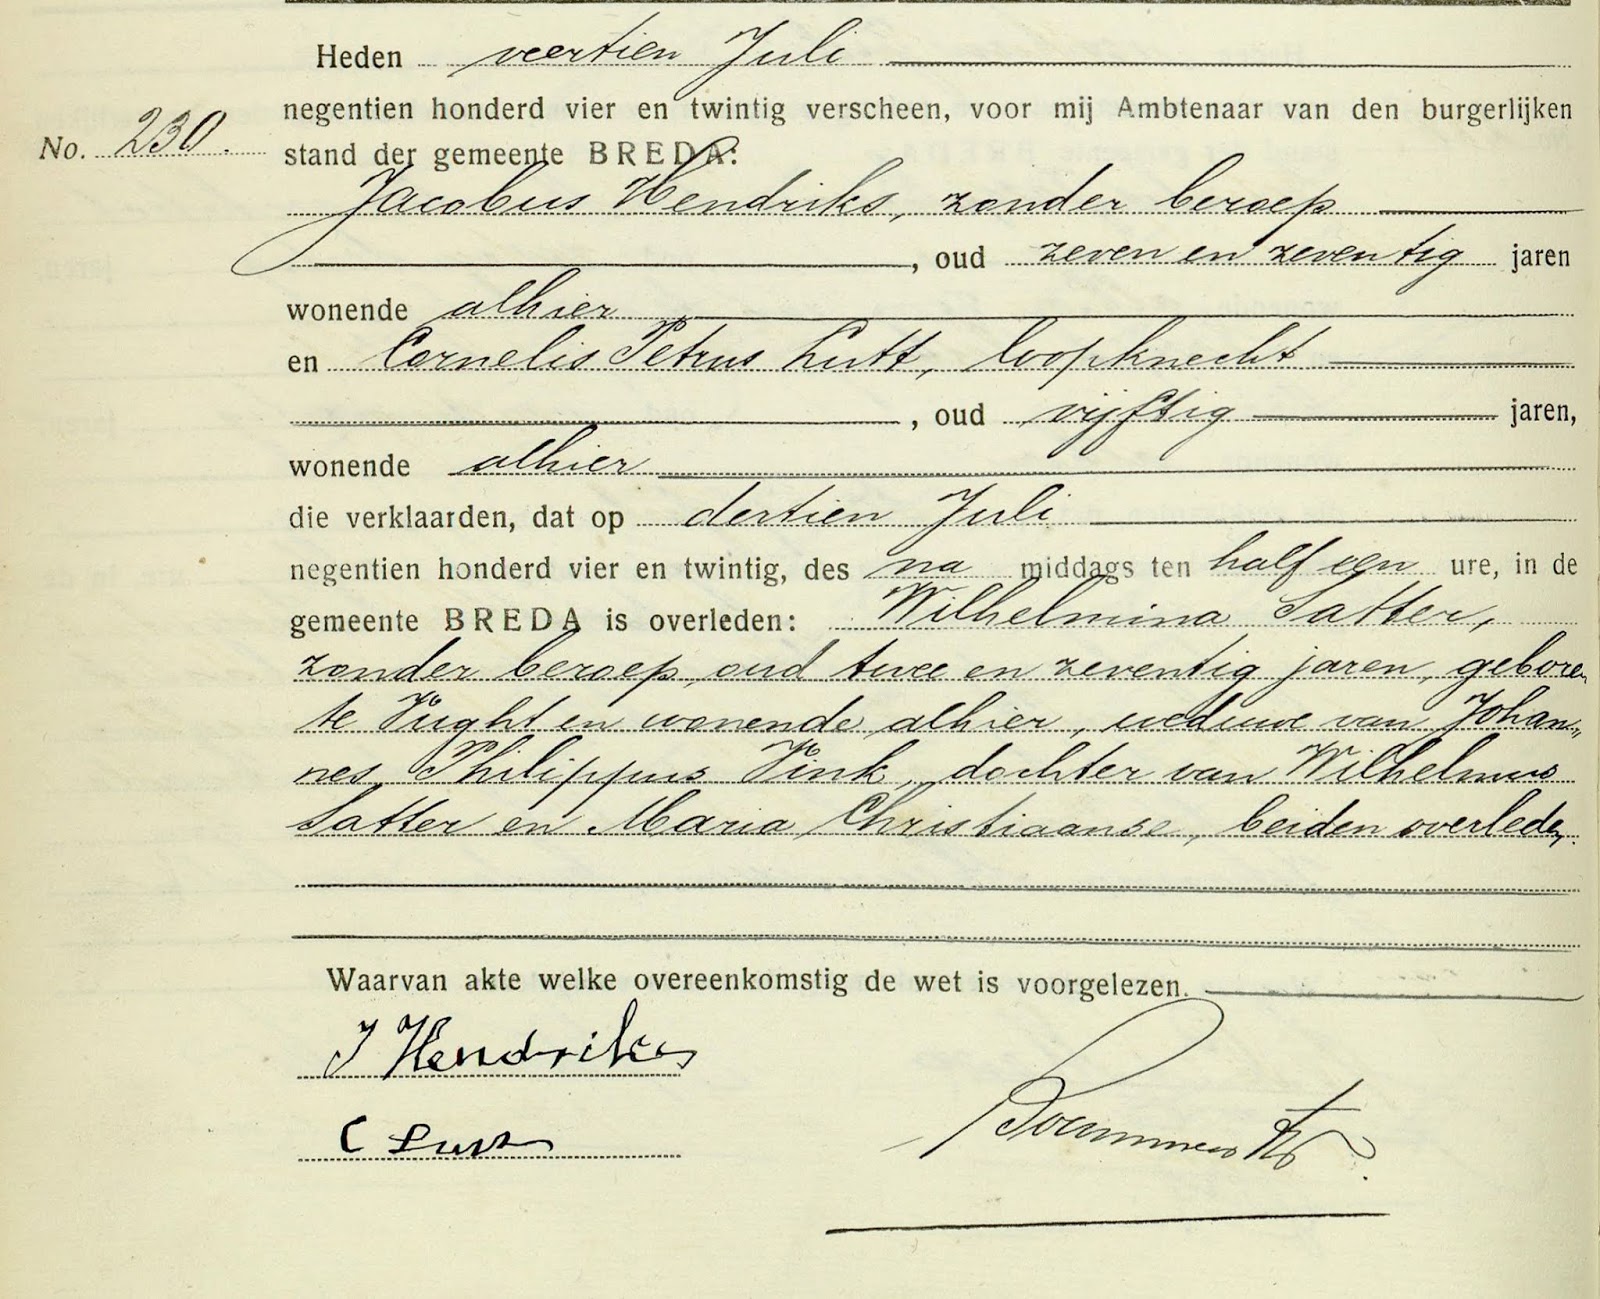 Heden veertien Juli
negentien honderd vier en twintig verscheen, voor mij Ambtenaar van den burgerlijken
No. 230.
stand der gemeente BREDA:
Jacobus Hendriks, zonder beroep
, oud zeven en zeventig jaren
wonende alhier
en Cornelis Petrus Lutt, loopknecht
, oud vijftig jaren,
wonende alhier
die verklaarden, dat op dertien Juli
negentien honderd vier en twintig, des na middags ten half een ure, in de
gemeente BREDA is overleden: Wilhelmina Satter,
zonder beroep, oud twee en zeventig jaren, geboren
te Vught en wonende alhier, weduwe van Johan„
nes Philippus Vink, dochter van Wilhelmus
Satter en Maria Christiaanse, beiden overleden.
Waarvan akte welke overeenkomstig de wet is voorgelezen.
J Hendriks
C Lutt